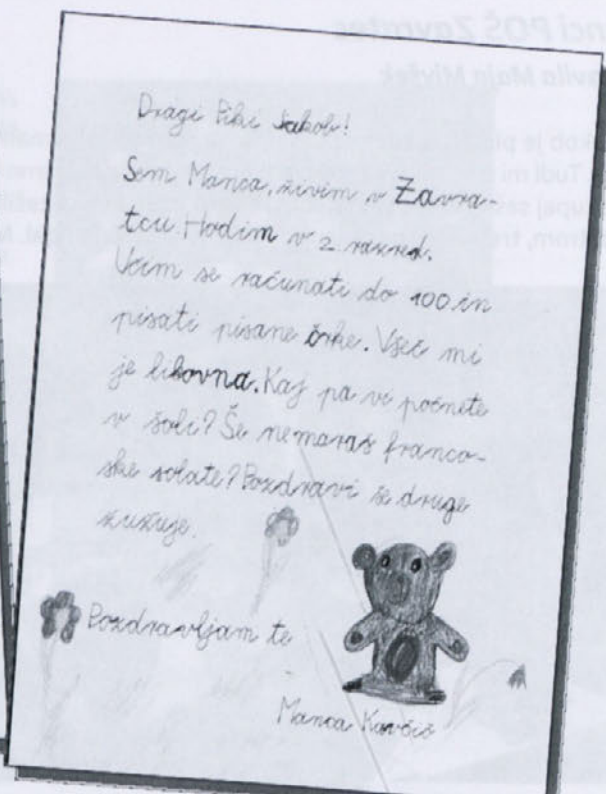 Dragi Piki Jakob!
Sem Manca, živim v Zavra-
tcu. Hodim v 2. razred.
Učim se računati do 100 in
pisati pisane črke. Všeč mi
je likovna. Kaj pa vi počnete
v šoli? Še nemaraš franco-
ske solate? Pozdravi še druge
žužuje.
Pozdravljam te
Manca Kavčič